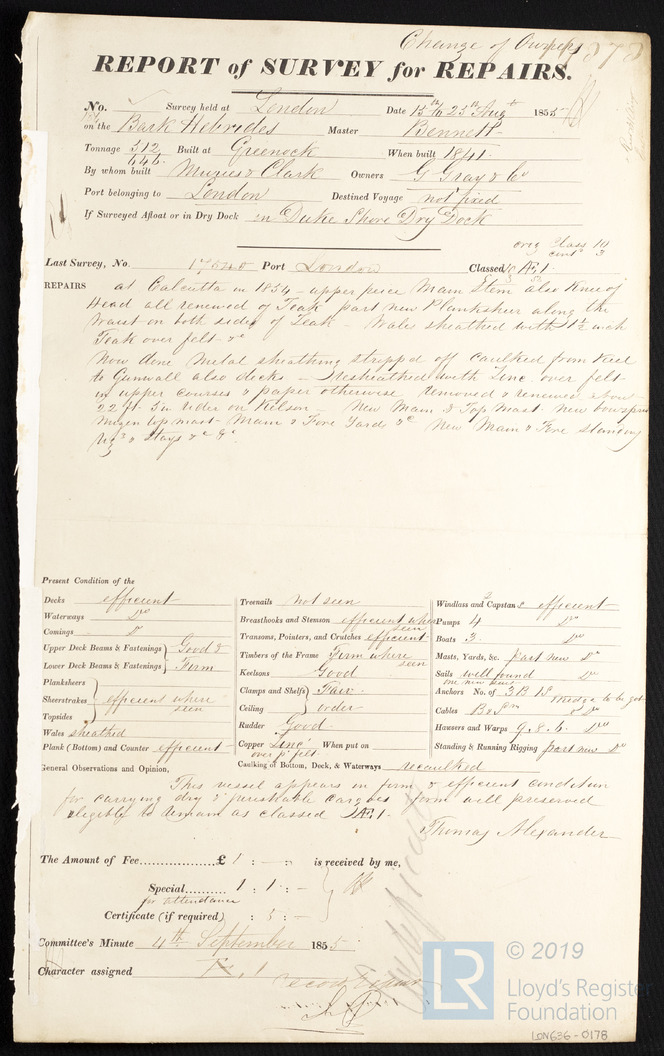 Change of Owners
REPORT of SURVEY for REPAIRS.
No. Survey held at London Date 15th 25th Augt 1855
on the Bark Hebrides Master Bennett
Tonnage 512 Built at Greenock When built 1841
646
By whom built Muries & Clark Owners G Gray & Co
Port belonging to London Destined Voyage not fixed
If Surveyed Afloat or in Dry Dock in Duke Shore Dry Dock
orig Class 10
cont 3
Last Survey, No. 17540 Port London Classed 10 Æ 1
REPAIRS at Calcutta in 1854 - upper piece Main Stem also Knee of
Head all renewed of Teak part new Planksheer along the
Waist on both sides of Teak - Wales sheathed with 1½ inch
Teak over felt - &c
Now done Metal sheathing stripped off caulked from Keel
to Gunwall also decks - Resheathed with Zinc over felt
in upper courses & paper otherwise removed & renewed about
22 ft 5 in rider on Kilson - New Main & Top Mast new bowsprit
Mizen top mast - Main & Fore Yards &c New Main & Fore standing
rigg & Stays &c &c
Present Condition of the
Decks efficient
Waterways Do
Comings Do
Upper Deck Beams & Fastenings Good &
Lower Deck Beams & Fastenings Firm
Planksheers
Sheerstrakes efficient where
seen
Topsides
Wales sheathed
Plank (Bottom) and Counter efficient
Treenails not seen
Breasthooks and Stemson efficient where
seen
Transoms, Pointers, and Crutches efficient
Timbers of the Frame Firm where
seen
Keelsons Good
Clamps and Shelfs Fair
Ceiling order
Rudder Good
Copper Zinc When put on
over pr felt
Caulking of Bottom, Deck, & Waterways recaulked
Windlass and Capstan s efficient
Pumps 4 Do
Boats 3 Do
Masts, Yards, &c. part new Do
Sails well found Do
one new
Anchors No. of 3 B 1 S Kedge to be got
Cables Do
Hausers and Warps 9.8.6. Do
Standing & Running Rigging part new Do
General Observations and Opinion,
This vessel appears in firm & efficient condition
for carrying dry & perishable cargoes form well preserved
eligible to remain as classed Æ 1.
Thomas Alexander
The Amount of Fee................£ 1 : - : is received by me,
Special.......... 1 : 1 : -
for attendance
Certificate (if required) : 5 : -
Committee's Minute 4th September 1855.
Character assigned Æ. 1
© 2019
LR
Lloyd's Register
Foundation
LON636-0178